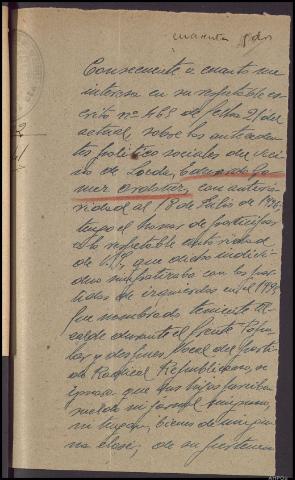 cuarenta y dos
Consecuente a cuanto me
interesa en su respetable es-
crito nº 463 de fecha 21 del
actual, sobre los anteceden-
tes político sociales del veci-
no de Lorda,
con anterio-
ridad al 18 de Julio de 1936
tengo el honor de participar
a la respetable autoridad
de V.S. que dicho indivi-
duo simpatizaba con los par-
tidos de izquierdas en el 1936
fue nombrado teniente Al-
calde durante el Frente Popu-
lar, y después, Vocal del parti-
do Radical Republicano, se
ignora que sus hijos
ni jornal ninguno,
ni tengan bienes de ningu-
na clase, de su pertenencia